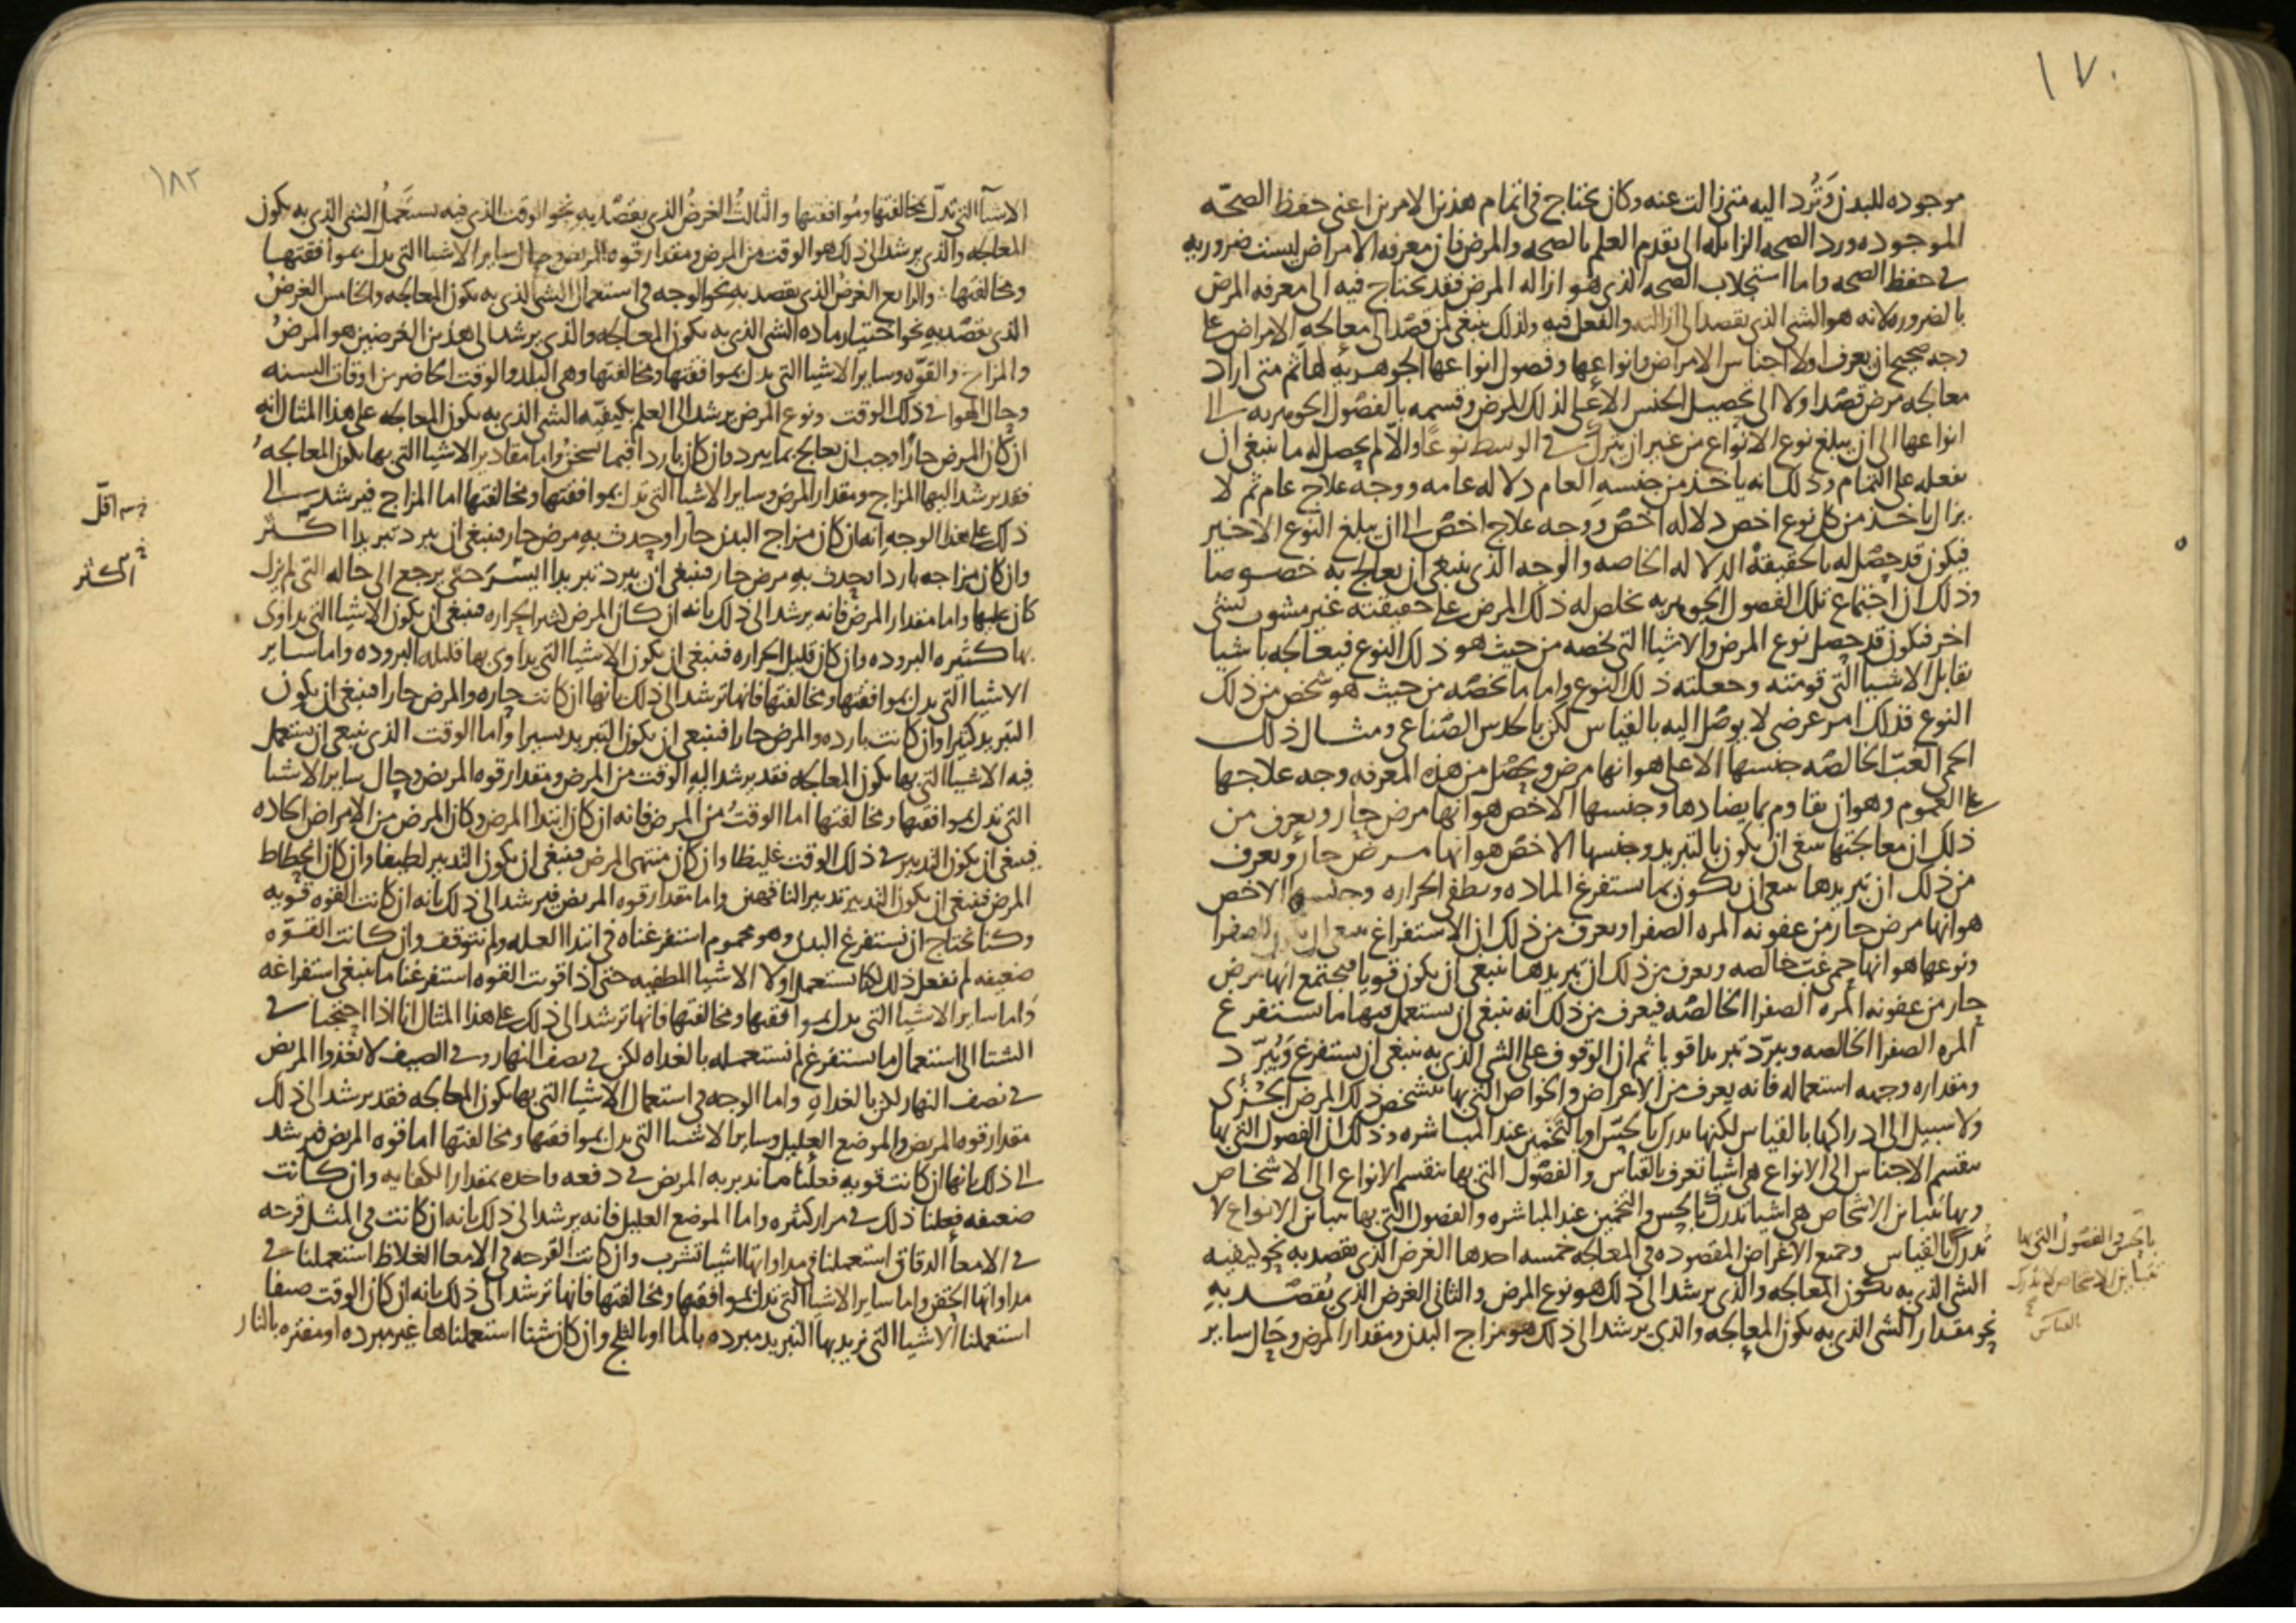 ١٧٠
موجوده للبدن وترد اليه متى زالت عنه وكان يحتاج في اتمام هذين الامرين اعني حفظ الصحه
الموجوده ورد الصحه الزايله الى تقدم العلم بالصحه والمرض فان معرفه الامراض ليست ضروريه
في حفظ الصحه واما استجلاب الصحه الذي هو ازاله المرض فقد يحتاج فيه الى معرفه المرض
بالضروره لانه هو الشي الذي يقصد الى ازالته والفعل فيه ولذلك ينبغي لمن قصد الى معالجه الامراض على
وجه صحيح ان يعرف اولا اجناس الامراض وانواعها وفصول انواعها الجوهريه لها ثم متى اراد
معالجه مرض قصد اولا الى تحصيل الجنس الاعلى لذلك المرض وقسمه بالفصول الجوهريه الى
انواعها الى ان يبلغ نوع الانواع من غير ان يترك في الوسط نوعا والا لم يحصل له ما ينبغي ان
يفعله على التمام وذلك انه ياخذ من جنسه العام دلاله عامه ووجه علاج عام ثم لا
يزال ياخذ من كل نوع اخص دلاله اخص ووجه علاج اخص الى ان يبلغ النوع الاخير
فيكون قد حصل له بالحقيقه الدلاله الخاصه والوجه الذي ينبغي ان يعالج به خصوصا
وذلك ان اجتماع تلك الفصول الجوهريه تخلص له ذلك المرض على حقيقته غير مشوب بشي
اخر فيكون قد حصل نوع المرض والاشيا التي تخصه من حيث هو ذلك النوع فيعالجه باشيا
تقابل الاشيا التي قومته وجعلته ذلك النوع واما ما يخصه من حيث هو شخص من ذلك
النوع فذلك امر عرضي لا يوصل اليه بالقياس لكن بالحدس الصناعي ومثال ذلك
الحمى الغب الخالصه جنسها الاعلى هو انها مرض ويحصل من هذه المعرفه وجه علاجها
على العموم وهو ان تقاوم بما يضادها وجنسها الاخص هو انها مرض حار ويعرف من
ذلك ان معالجتها ينبغي ان يكون بالتبريد وجنسها الاخص هو انها مرض حار ويعرف
من ذلك ان تبريدها ينبغي ان يكون بما يستفرغ الماده ويطفي الحراره وجنسها الاخص
هو انها مرض حار من عفونه المره الصفرا ويعرف من ذلك ان الاستفراغ ينبغي ان للصفرا
ونوعها هو انها حمى غب خالصه ويعرف من ذلك ان تبريدها ينبغي ان يكون قويا فيجتمع انها مرض
حار من عفونه المره الصفرا الخالصه فيعرف من ذلك انه ينبغي ان يستعمل فيها ما يستفرغ
المره الصفرا الخالصه ويبرد تبريدا قويا ثم ان الوقوف على الشي الذي به ينبغي ان يستفرغ ويبرد
ومقداره وجهه استعماله فانه يعرف من الاعراض والخواص التي بها يتشخص ذلك المرض الجزئ
ولا سبيل الى ادراكها بالقياس لكنها تدرك بالحس او بالتخمين عند المباشره وذلك ان الفصول التي بها
ينقسم الاجناس الى الانواع هي اشيا تعرف بالقياس والفصول التي بها تنقسم الانواع الى الاشخاص
وبها تتباين الاشخاص هي اشيا تدرك بالحس والتخمين عند المباشره والفصول التي بها تتباين الانواع لا
تدرك بالقياس وجميع الاغراض المقصوده في المعالجه خمسه احدها الغرض الذي يقصد به نحو كيفيه
الشي الذي به يكون المعالجه والذي يرشد الى ذلك هو نوع المرض والثاني الغرض الذي يقصد به
نحو مقدار الشي الذي به يكون المعالجه والذي يرشد الى ذلك هو مزاج البدن ومقدار المرض وحال ساير
بالحس والفصول التي بها
تتباين الاشخاص لا تدرك
بالقياس
١٨٢
الاشيا التي تدل بمخالفتها وموافقتها والثالث الغرض الذي يقصد به نحو الوقت الذي فيه يستعمل الشي الذي به يكون
المعالجه والذي يرشد الى ذلك هو الوقت من المرض ومقدار قوه المريض وحال ساير الاشيا التي تدل بموافقتها
ومخالفتها والرابع الغرض الذي يقصد به نحو الوجه في استعمال الشي الذي به يكون المعالجه والخامس الغرض
الذي يقصد به نحو اختيار ماده الشي الذي به يكون المعالجه والذي يرشد الى هذين الغرضين هو المرض
والمزاج والقوه وساير الاشيا التي تدل بموافقتها ومخالفتها وهي البلد والوقت الحاضر من اوقات السنه
وحال الهوا في ذلك الوقت ونوع المرض يرشد الى العلم بكيفيه الشي الذي به يكون المعالجه على هذا المثال انه
ان كان المرض حارا وجب ان يعالج بما يبرد وان كان باردا فبما يسخن واما مقادير الاشيا التي بها يكون المعالجه
فقد يرشد اليها المزاج ومقدار المرض وساير الاشيا التي تدل بموافقتها ومخالفتها اما المزاج فيرشد الى
ذلك على هذا الوجه انه ان كان مزاج البدن حارا وحدث به مرض حار فينبغي ان يبرد تبريدا اكثر
وان كان مزاجه باردا يحدث به مرض حار فينبغي ان يبرد تبريدا ايسر حتى يرجع الى حاله التي لم يزل
كان عليها واما مقدار المرض فانه يرشد الى ذلك بانه ان كان المرض كثير الحراره فينبغي ان يكون الاشيا التي يداوى
بها كثيره البروده وان كان قليل الحراره فينبغي ان يكون الاشيا التي يداوى بها قليله البروده واما ساير
الاشيا التي تدل بموافقتها ومخالفتها فانها ترشد الى ذلك بانها ان كانت حاره والمرض حارا فينبغي ان يكون
التبريد كثيرا وان كانت بارده والمرض حارا فينبغي ان يكون التبريد يسيرا واما الوقت الذي ينبغي ان يستعمل
فيه الاشيا التي بها يكون المعالجه فقد يرشد اليه الوقت من المرض ومقدار قوه المريض وحال ساير الاشيا
التي تدل بموافقتها ومخالفتها اما الوقت من المرض فانه ان كان ابتدا المرض وكان المرض من الامراض الحاده
فينبغي ان يكون التدبير في ذلك الوقت غليظا وان كان منتهى المرض فينبغي ان يكون التدبير لطيفا وان كان انحطاط
المرض فينبغي ان يكون التدبير تدبير الناقهين واما مقدار قوه المريض فيرشد الى ذلك بانه ان كانت القوه قويه
وكنا نحتاج ان نستفرغ البدن وهو محموم استفرغناه في ابتدا العله ولم نتوقف وان كانت القوه
ضعيفه لم نفعل ذلك لكنا نستعمل اولا الاشيا المطفيه حتى اذا قويت القوه استفرغنا ما ينبغي استفراغه
واما ساير الاشيا التي تدل بموافقتها ومخالفتها فانها ترشد الى ذلك على هذا المثال انا اذا احتجنا في
الشتا الى استعمال ما يستفرغ لم نستعمله بالغداه لكن في نصف النهار وفي الصيف لا نغذوا المريض
في نصف النهار لكن بالغداه واما الوجه في استعمال الاشيا التي بها يكون المعالجه فقد يرشد الى ذلك
مقدار قوه المريض والموضع العليل وساير الاشيا التي تدل بموافقتها ومخالفتها اما قوه المريض فيرشد
الى ذلك بانها ان كانت قويه فعلنا ما ندبر به المريض في دفعه واحده بمقدار الكفايه وان كانت
ضعيفه فعلنا ذلك في مرار كثيره واما الموضع العليل فانه يرشد الى ذلك بانه ان كانت في المثل قرحه
في الامعا الدقاق استعملنا في مداواتها اشيا تشرب وان كانت القرحه في الامعا الغلاظ استعملنا في
مداواتها الحقن واما ساير الاشيا التي تدل بموافقتها ومخالفتها فانها ترشد الى ذلك بانه ان كان الوقت صيفا
استعملنا الاشيا التي نريد بها التبريد مبرده بالما او بالثلج وان كان شتا استعملناها غير مبرده او مفتره بالنار
اقل
اكثر